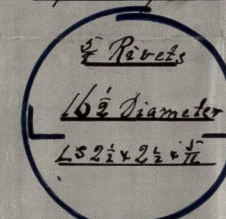 Rivets
16 1/2 Diameter
LS 2 1/2 x 2 1/2 x 5/16